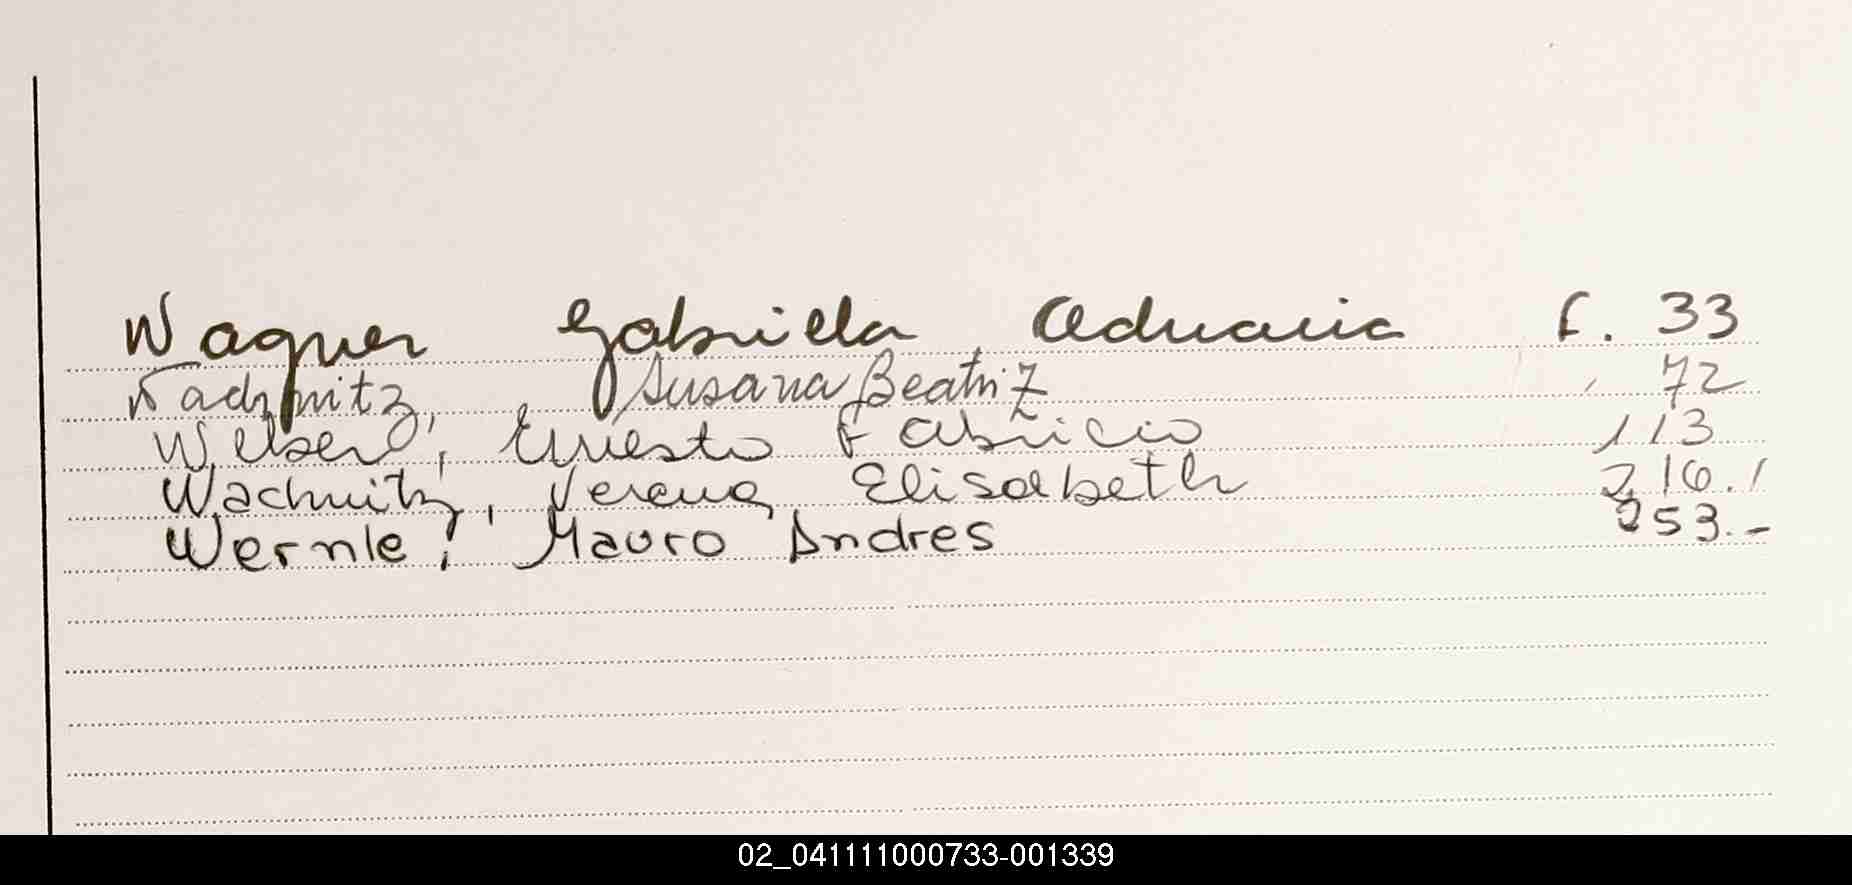 Wagner Gabriela Adriana F. 33
Wachnitz, Susana Beatriz 72
Welsen, Ernesto Fabricio 113
Wachnitz, Verena Elisabeth 216.
Wernle, Mauro Andres 253.-
02_041111000733-001339